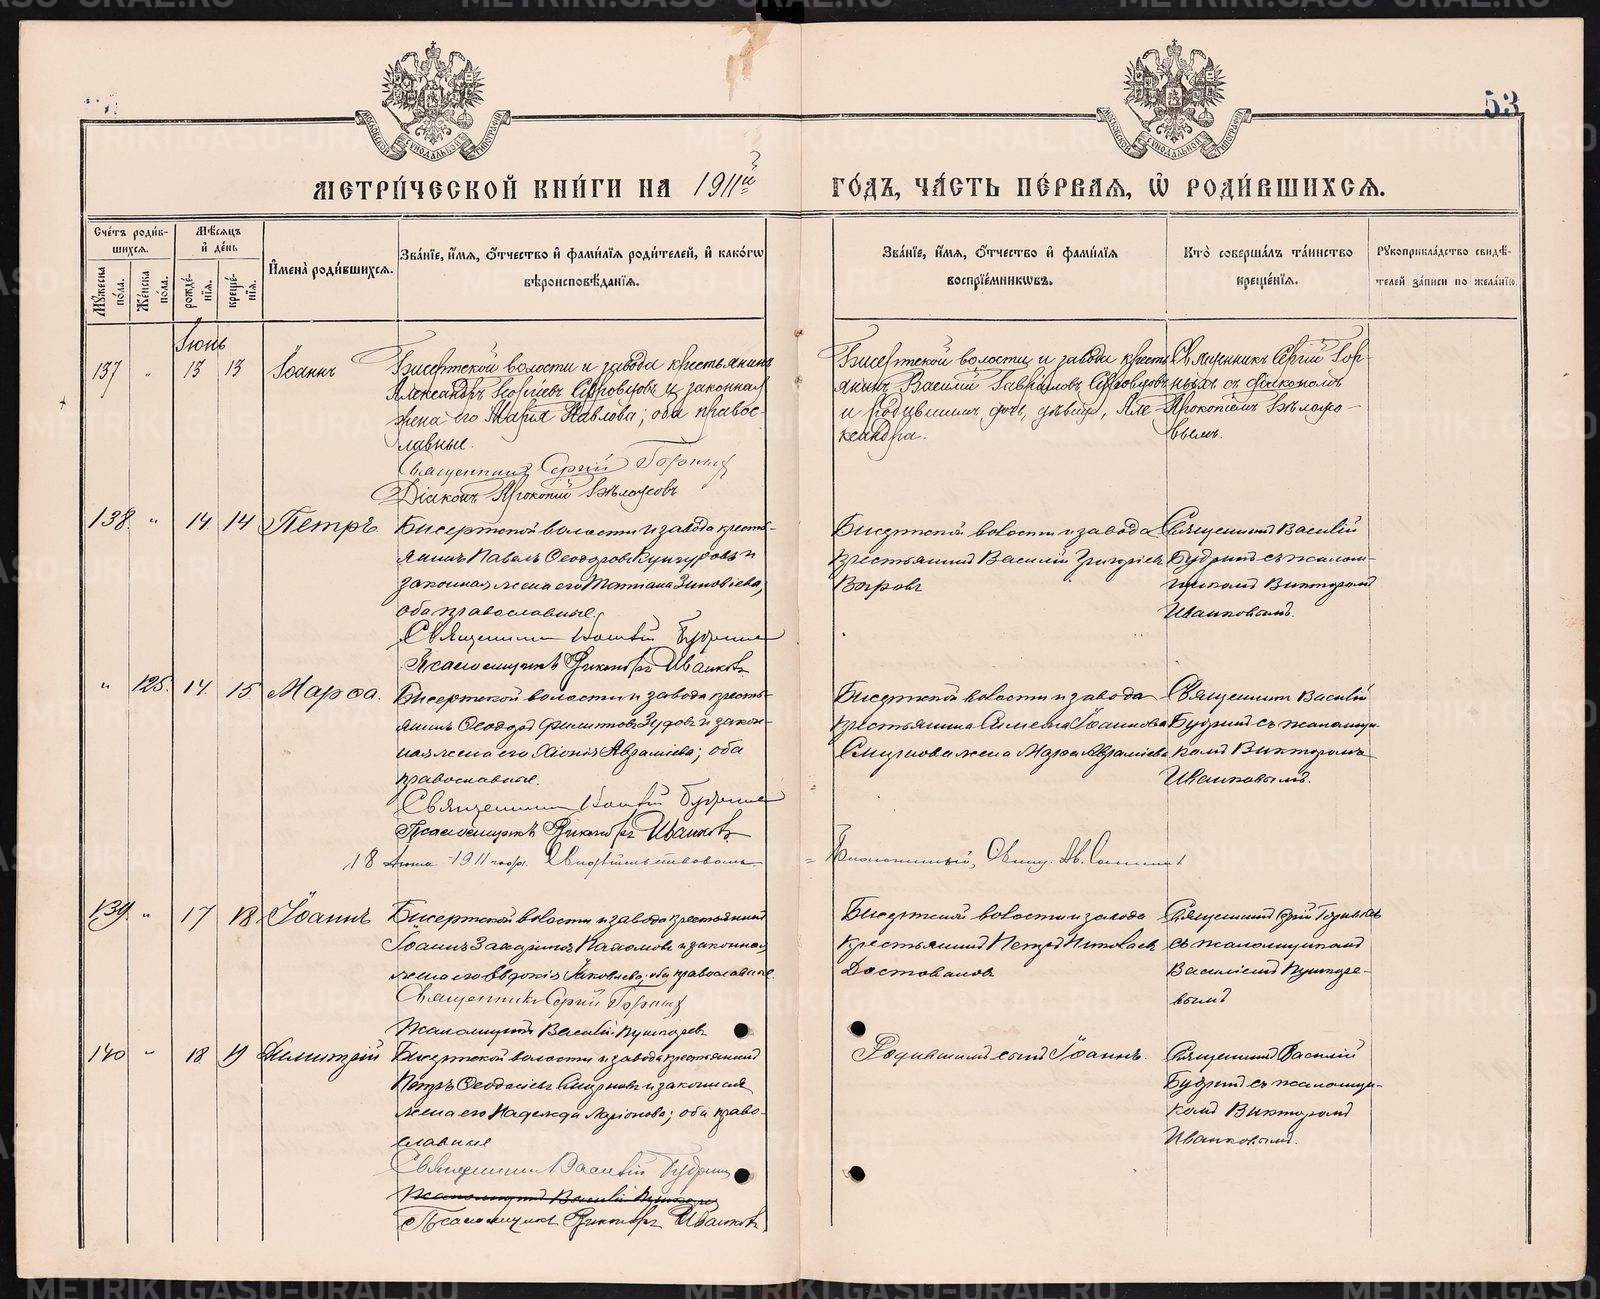 53
МЕТРИ́ЧЕСКОЙ КНИ́ГИ НА 1911й
ГО́ДЪ, ЧА́СТЬ ПЕ́РВАЯ, Ѡ҆ РОДИ́ВШИХСЯ.
Сче́тъ роди́в-
шихся.
Мꙋ́жеска по́ла.
Же́нска по́ла.
Мѣ́сяцъ
и҆ де́нь
рожде́-
нїя.
креще́-
нїя.
И҆мена̀ роди́вшихся.
Зва́нїе, и҆́мя, ѻ҆́тчество и҆ фами́лїя роди́телей, и҆ како́гѡ
вѣроисповѣ́данїя.
Зва́нїе, и҆́мя, ѻ҆́тчество и҆ фами́лїя
воспрїе́мникѡвъ.
Кто̀ соверша́лъ та́инство
креще́нїя.
Рꙋкоприкла́дство свидѣ́-
телей за́писи по жела́нїю.
Іюнь
137 " 13 13 Іоаннъ
Бисертской волости и завода крестьянинъ
Александръ Георгіевъ и законная
жена его Марія Павлова; оба правос-
лавные.
Священникъ Сергій Горныхъ
Діаконъ Прокопій
Бисертской волости и завода кресть-
янинъ Василій Гавріиловъ
и родившихъ дочь, дѣвица, Але-
ксандра.
Священникъ Сергій Гор-
ныхъ съ діакономъ
Прокопіемъ
вымъ.
138. " 14 14 Петръ
Бисертской волости и завода кресть-
янинъ Павелъ Ѳеодоровъ Кунгуровъ и
законная жена его Татіана Зиновіева;
оба православные.
Священникъ Василій
Псаломщикъ Викторъ Иванковъ
Бисертской волости и завода
крестьянинъ Василій Григорьевъ
Священникъ Василій
съ псалом-
щикомъ Викторомъ
Иванковымъ.
" 125. 14. 15 Марѳа.
Бисертской волости и завода кресть-
янинъ Ѳеодоръ и закон-
ная жена его Хіонія Авраміева; оба
православные.
Священникъ Василій
Псаломщикъ Викторъ Иванковъ
Бисертской волости и завода
крестьянина Іоаннова
Смирнова жена Марѳа Авраміева
Священникъ Василій
съ псаломщи-
комъ Викторомъ
Иванковымъ.
18 Іюня 1911 года. Свидѣтельствовалъ
=
139. " 17 18 Іоаннъ
Бисертской волости и завода крестьянинъ
Іоаннъ и законная
жена его Евдокія Яковлева; оба православные.
Священникъ Сергій Горныхъ
Псаломщикъ Василій
Бисертской волости и завода
крестьянинъ Петръ
Достоваловъ
Священникъ Сергій Горныхъ
съ псаломщикомъ
Василіемъ
вымъ
140 " 18 19 Димитрій
Бисертской волости и завода крестьянинъ
Петръ Ѳеодосіевъ Смирновъ и законная
жена его Надежда Ларіонова; оба право-
славные
Священникъ Василій
Псаломщикъ Василій
Псаломщикъ Викторъ Иванковъ
Родившихъ сынъ Іоаннъ.
Священникъ Василій
съ псаломщи-
комъ Викторомъ
Иванковымъ.
METRIKI.GASO-URAL.RU